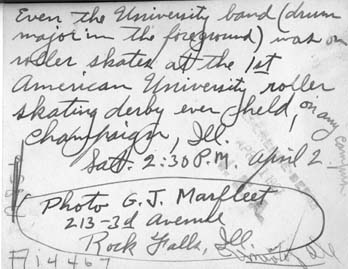 Even the University band (drum
major in the foreground) was on
roller skates at the 1st
American University roller
skating derby ever held, on any campus
Champaign, Ill.
Sat. 2:30 P.M. April 2
Photo G. J. Marfleet
213-3d Avenue
Rock Falls, Ill.
14467